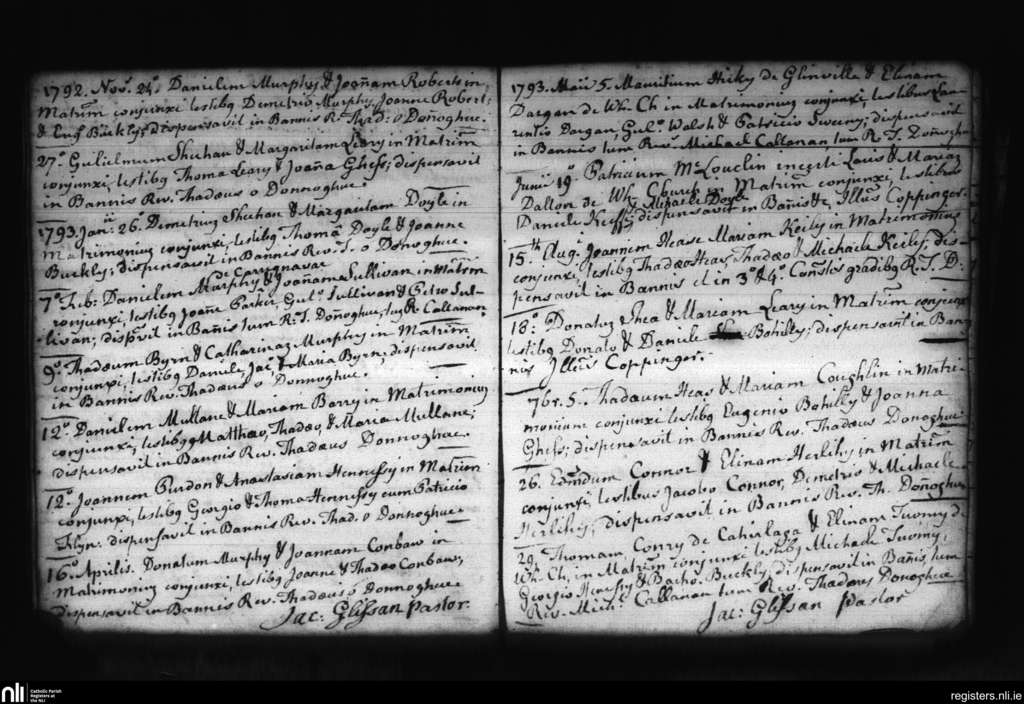 1792. Nov.r 24.o Danielem Murphy & Joan̄am Roberts in
Matrim̄ conjunxi testibq Demetrio Murphy, Joanne Robert;
& Buckly; dispensavit in Bannis R. Thad: o Donoghue.
27.o Gulielmum Shehan & Margaritam Leary in Matrim̄
conjunxi, testibq Thoma Leary & Joan̄a Ghess; dispensavit
in Bannis Rev. Thadæus o Donnoghue.
1793. Jan: 26. Demetrium Shehan & Margaritam Doyle in
Matrimonium conjunxi, testibq Thomâ Doyle & Joanne
Buckly; dispensavit in Bannis Rev. T. o Donoghue.
de Carrignavar
7.o Feb: Danielem Murphy & Joan̄am Sullivan in Matrim̄
conjunxi, testibq Joan̄e Barker, Gul.o Sullivan & Petro Sul-
livan; dispvit in Ban̄is tum R. T. Don̄oghue, tum R. Callanan
9.o Thadæum Byrn & Catharinam Murphy in Matrim̄
conjunxi, testibq Daniele, Jac.o & Maria Byrn; dispensavit
in Bannis Rev. Thadæus o Donnoghue.
12.o Danielem Mullane & Mariam Barry in Matrimonium
conjunxi, testibq Matthæo, Thadæo, & Maria Mullane;
dispensavit in Bannis Rev. Thadæus Donnoghue.
12. Joannem Purdon & Anastasiam Hennessy in Matrim̄
conjunxi, testibq Georgio & Thoma Hennessy cum Patricio
Flyn: dispensavit in Bannis Rev. Thad. o Donnoghue
16.o Aprilis. Donatum Murphy & Joannam Conbaw in
Matrimonium conjunxi, testibq Joanne & Thadæo Conbaw;
dispensavit in Bannis Rev. Thadæus o Donnoghue
Jac: Glissan Pastor.
1793. Maii 5. Mauritium Hicky de Glinville & Elinam
Dargan de Wh. Ch. in Matrimonium conjunxi, testibus Lau-
rentio Dargan, Gul.o Walsh & Patricio Sweeny; dispensavit
in Bannis tum Rev. Michael Callanan tum R. T. Donoghue
Junii 19. Patricium McLouclin incerti Loci & Mariam
Dallon de Wh. Church in Matrim̄ conjunxi, testibus
Daniele Keeffe & Michaele Doyle dispensavit in Ban̄is Illus Coppinger.
15.th Aug. Joannem Hease Mariam Keily in Matrimonium
conjunxi, testibq Thadæo Heas, Thadæo & Michaele Keily; dis-
pensavit in Bannis et in 3.o & 4.o Con̄stis gradibq R. T. D:
18.o Donatum Shea & Mariam Leary in Matrim̄ conjunxi
testibq Donato & Daniele Bohilly; dispensavit in Ban-
nis Illus Coppinger.
7br. 5. Thadæum Heas & Mariam Coughlin in Matri-
monium conjunxi testibq Eugenio Bohilly & Joanna
Ghess; dispensavit in Bannis Rev. Thadæus Donoghue
26. Edmdum Connor & Elinam Herlihy in Matrim̄
conjunxi, testibus Jacobo Connor, Demetrio & Michaele
Herlihy; dispensavit in Bannis Rev. Th. Don̄oghue
29. Thomam Conry de Cahirlaga & Elinam Twomy de
Wh. Ch. in Matrim̄ conjunxi testibq Michaele Twomy,
Georgio Henessy & Bucho. Buckly dispensavit in Ban̄is, tum
Rev. Mich.l Callanan tum Rev. Thadæus Donoghue
Jac: Glissan Pastor
nli
Catholic Parish
Registers at
the NLI
registers.nli.ie